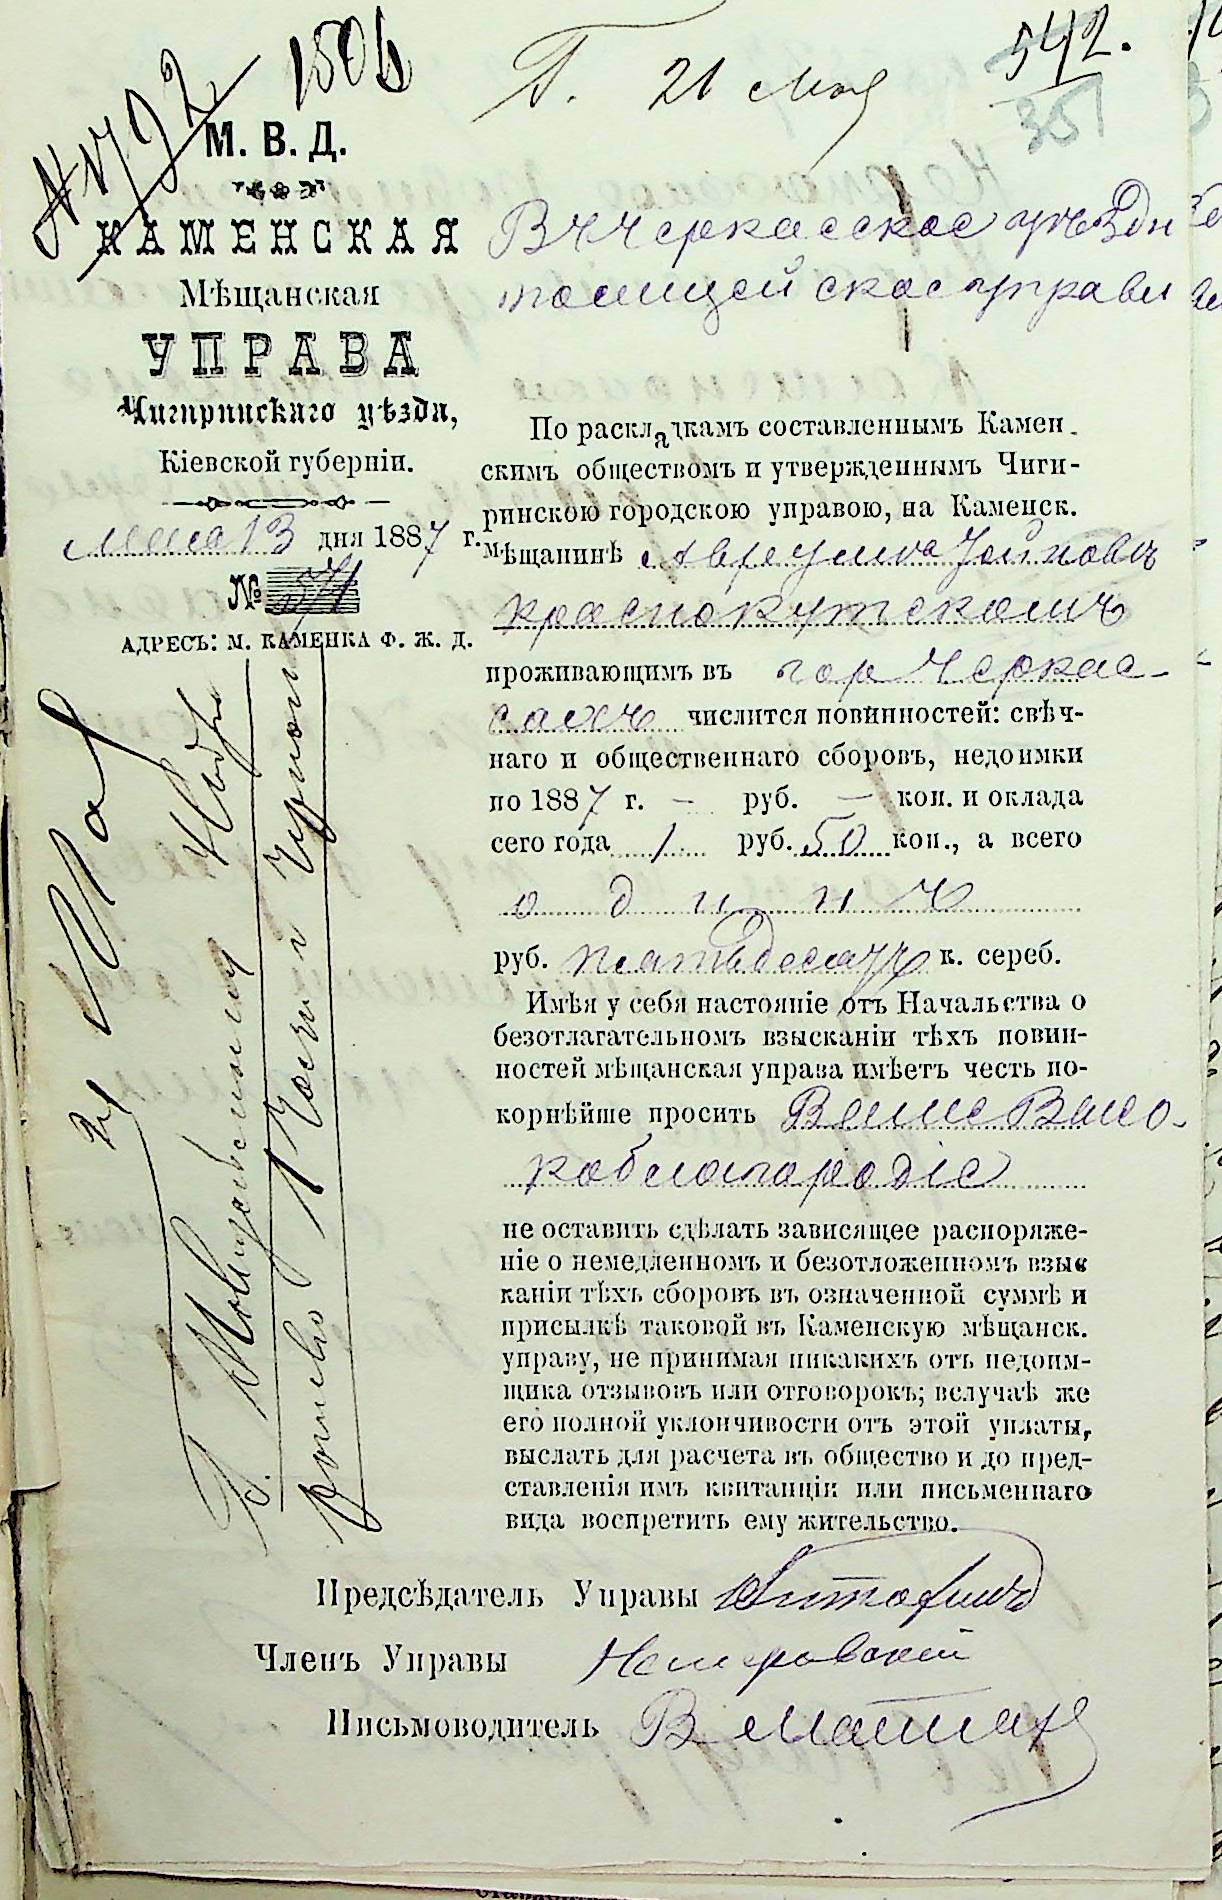 1506
П. 21 мая
542.
351
М. В. Д.
КАМЕНСКАЯ
Мѣщанская
УПРАВА
Чигиринскаго уѣзда,
Кіевской губерніи.
мая 13 дня 1887 г.
№ 571
АДРЕСЪ: М. КАМЕНКА Ф. Ж. Д.
Въ Черкасское уѣздн
полицейское управл
По раскладкамъ составленнымъ Камен-
скимъ обществомъ и утвержденнымъ Чиги-
ринскою городскою управою, на Каменск.
мѣщанинѣ
краснокутскомъ
проживающимъ въ гор Черкас-
сахъ числится повинностей: свѣч-
наго и общественнаго сборовъ, недоимки
по 1887 г. – руб. – коп. и оклада
сего года 1 руб. 50 коп., а всего
одинъ
руб. пятьдесятъ к. сереб.
Имѣя у себя настояніе отъ Начальства о
безотлагательномъ взысканіи тѣхъ повин-
ностей мѣщанская управа имѣетъ честь по-
корнѣйше просить Ваше Высо-
коблагородіе
не оставить сдѣлать зависящее распоряже-
ніе о немедленномъ и безотложенномъ взыс
каніи тѣхъ сборовъ въ означенной суммѣ и
присылкѣ таковой въ Каменскую мѣщанск.
управу, не принимая никакихъ отъ недоим-
щика отзывовъ или отговорокъ; вслучаѣ же
его полной уклончивости отъ этой уплаты,
выслать для расчета въ общество и до пред-
ставленія имъ квитанціи или письменнаго
вида воспретить ему жительство.
Предсѣдатель Управы
Членъ Управы
Письмоводитель В